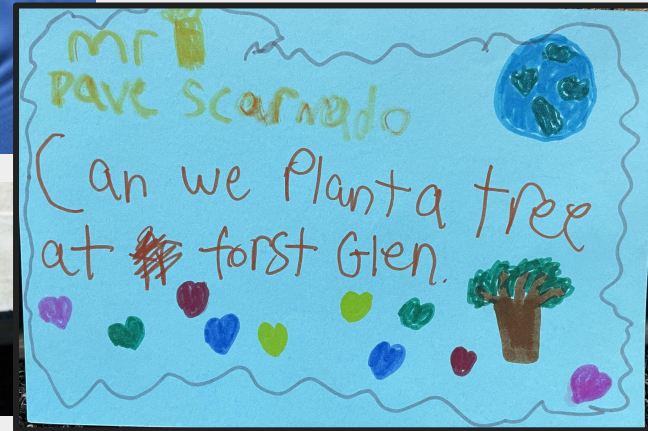 mr
Dave scarnado
Can we Plant a tree
at forst Glen.